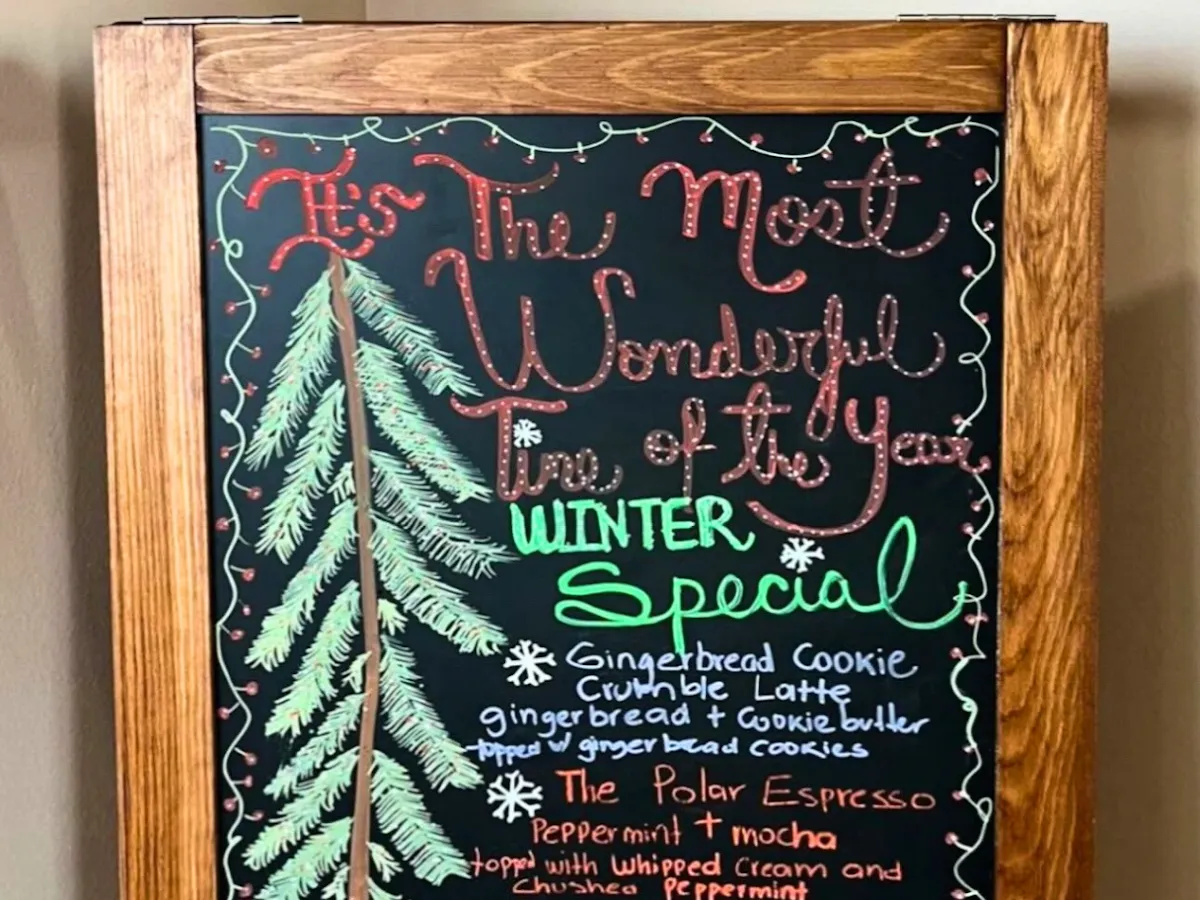 It's The Most
Wonderful
Time of the Year
WINTER
Special
Gingerbread Cookie
Crumble Latte
gingerbread + Cookie butter
topped w/ gingerbread cookies
The Polar Espresso
Peppermint + mocha
topped with Whipped Cream and
Chushed Peppermint